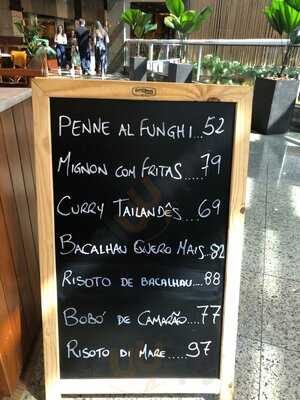 PENNE AL FUNGHI...52
MIGNON COM FRITAS.....79
CURRY TAILANDÊS....69
BACALHAU QUERO MAIS..82
RISOTO DE BACALHAU....88
BOBÓ DE CAMARÃO....77
RISOTO DI MARE.....97